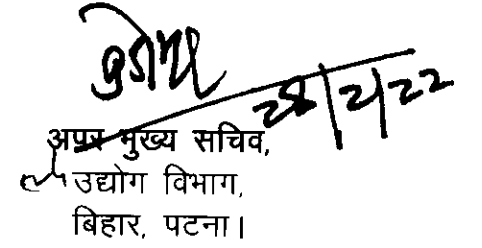 28/2/22
अपर मुख्य सचिव,
उद्योग विभाग,
बिहार, पटना।